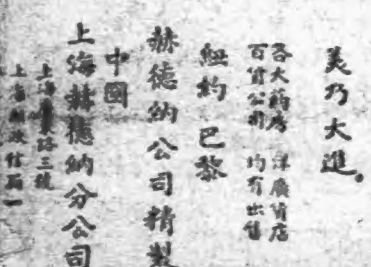 美乃大進。
各大藥房 洋廣貨店
百貨公司 均有出售
紐約 巴黎
赫德納公司精製
中國
上海赫德納分公司
上海路三號
上海郵政信箱一